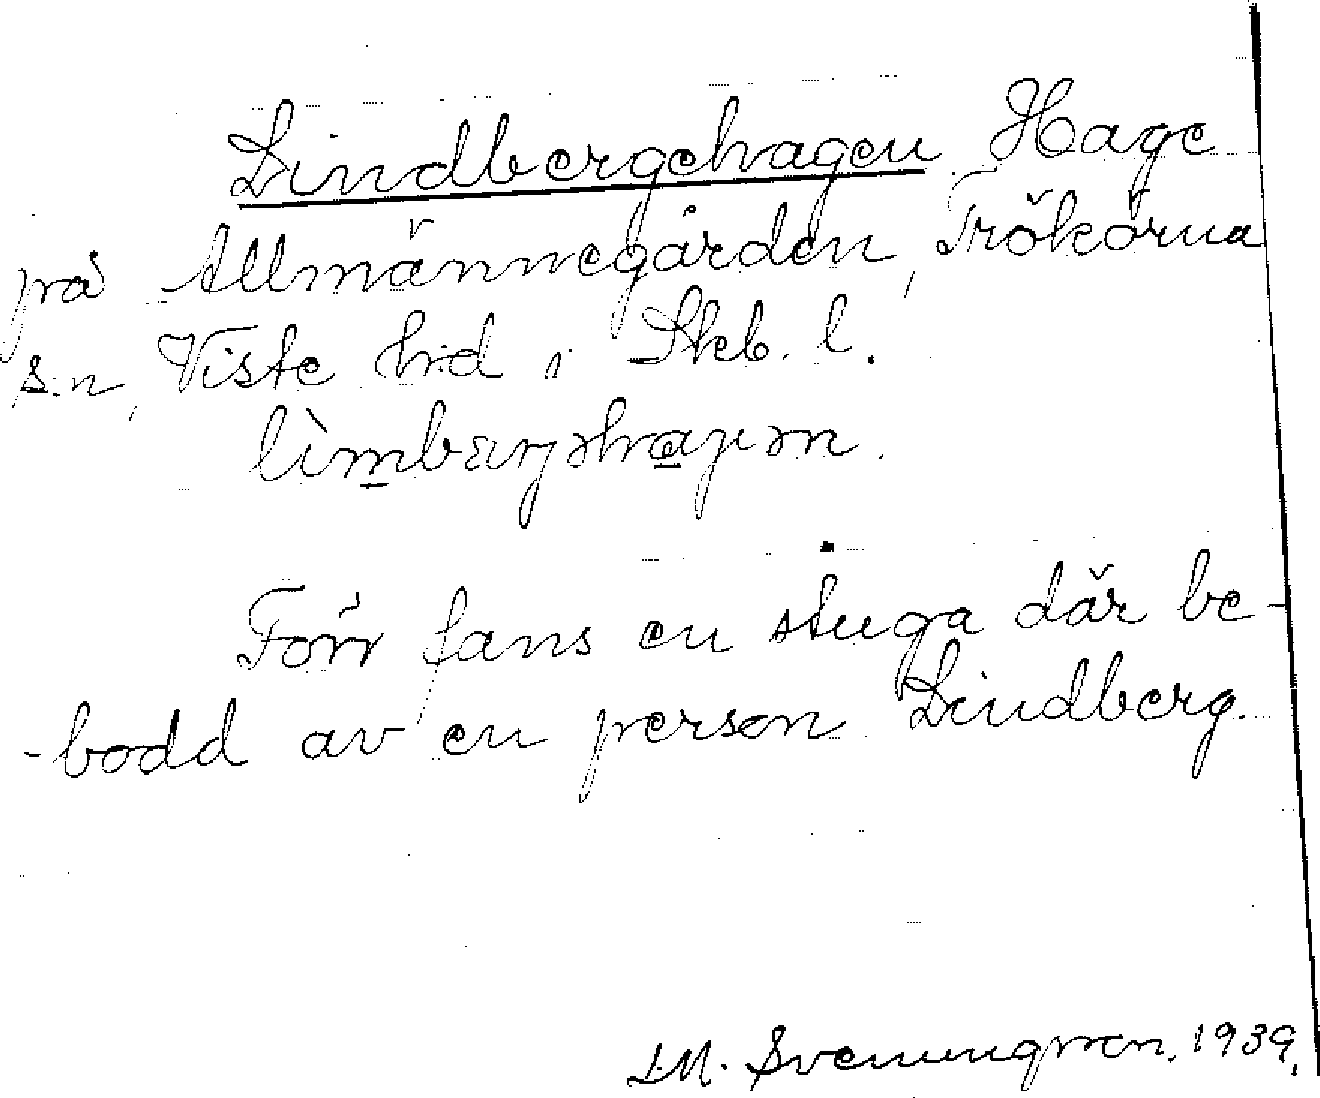 Lindbergehagen Hage
på Allmännegården, Trökörna
s.n, Viste hd i Skb. l.
Förr fans en stuga där be-
-bodd av en person Lindberg.
J.M. Svenungsson, 1939,